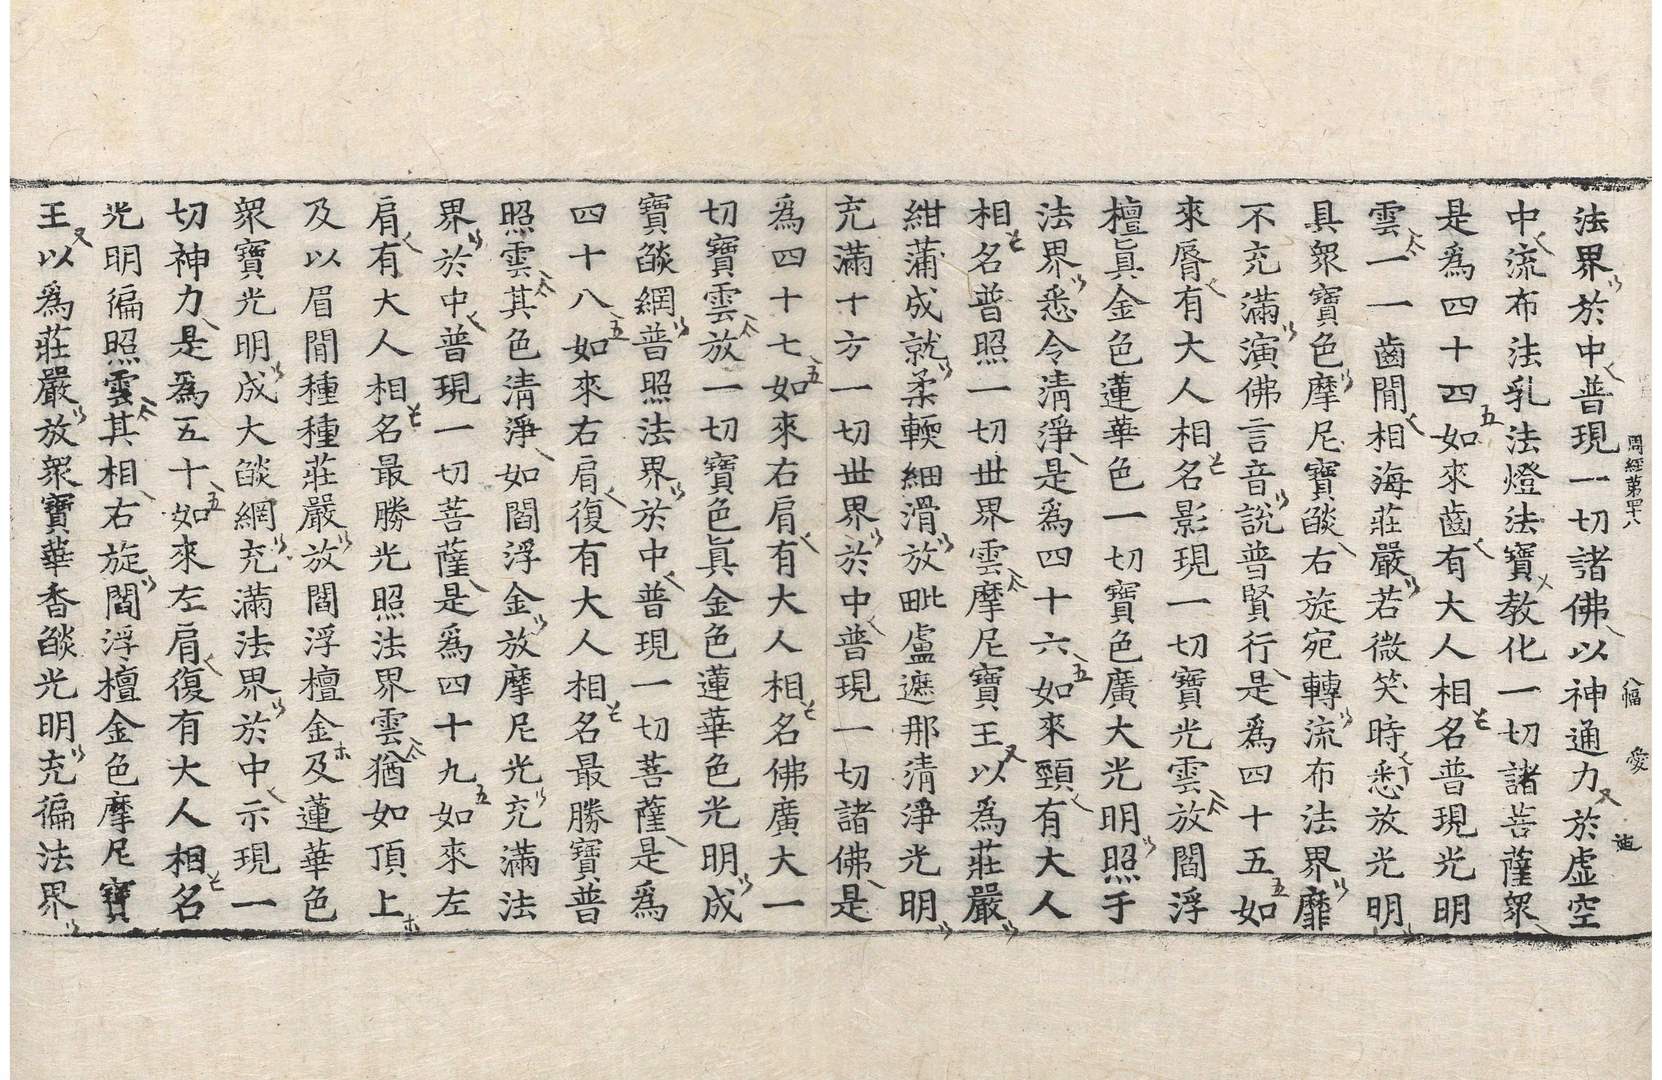 周經第四十八 八幅 愛
法界於中普現一切諸佛以神通力於虛空
中流布法乳法燈法寶教化一切諸菩薩衆
是爲四十四如來齒有大人相名普現光明
雲一一齒間相海莊嚴若微笑時悉放光明
具衆寶色摩尼寶燄右旋宛轉流布法界靡
不充滿演佛言音說普賢行是爲四十五如
來脣有大人相名影現一切寶光雲放閻浮
檀眞金色蓮華色一切寶色廣大光明照于
法界悉令清淨是爲四十六如來頸有大人
相名普照一切世界雲摩尼寶王以爲莊嚴
紺蒲成就柔輭細滑放毗盧遮那清淨光明
充滿十方一切世界於中普現一切諸佛是
爲四十七如來右肩有大人相名佛廣大一
切寶雲放一切寶色眞金色蓮華色光明成
寶燄網普照法界於中普現一切菩薩是爲
四十八如來右肩復有大人相名最勝寶普
照雲其色清淨如閻浮金放摩尼光充滿法
界於中普現一切菩薩是爲四十九如來左
肩有大人相名最勝光照法界雲猶如頂上
及以眉間種種莊嚴放閻浮檀金及蓮華色
衆寶光明成大燄網充滿法界於中示現一
切神力是爲五十如來左肩復有大人相名
光明徧照雲其相右旋閻浮檀金色摩尼寶
王以爲莊嚴放衆寶華香燄光明充徧法界